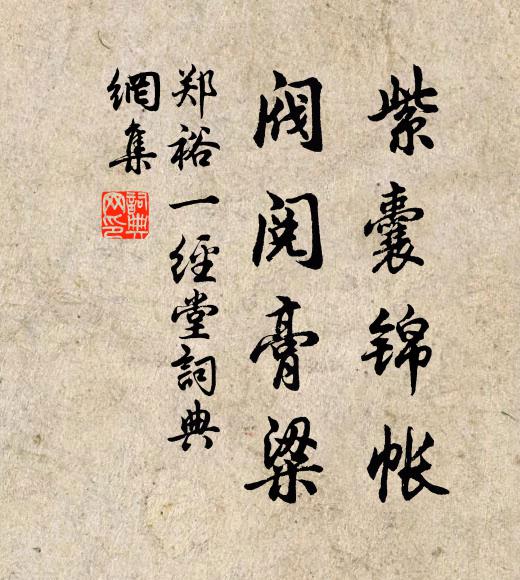 紫囊锦帐
阀阅膏粱
郑裕一经堂詞典
網集
詞典
网印